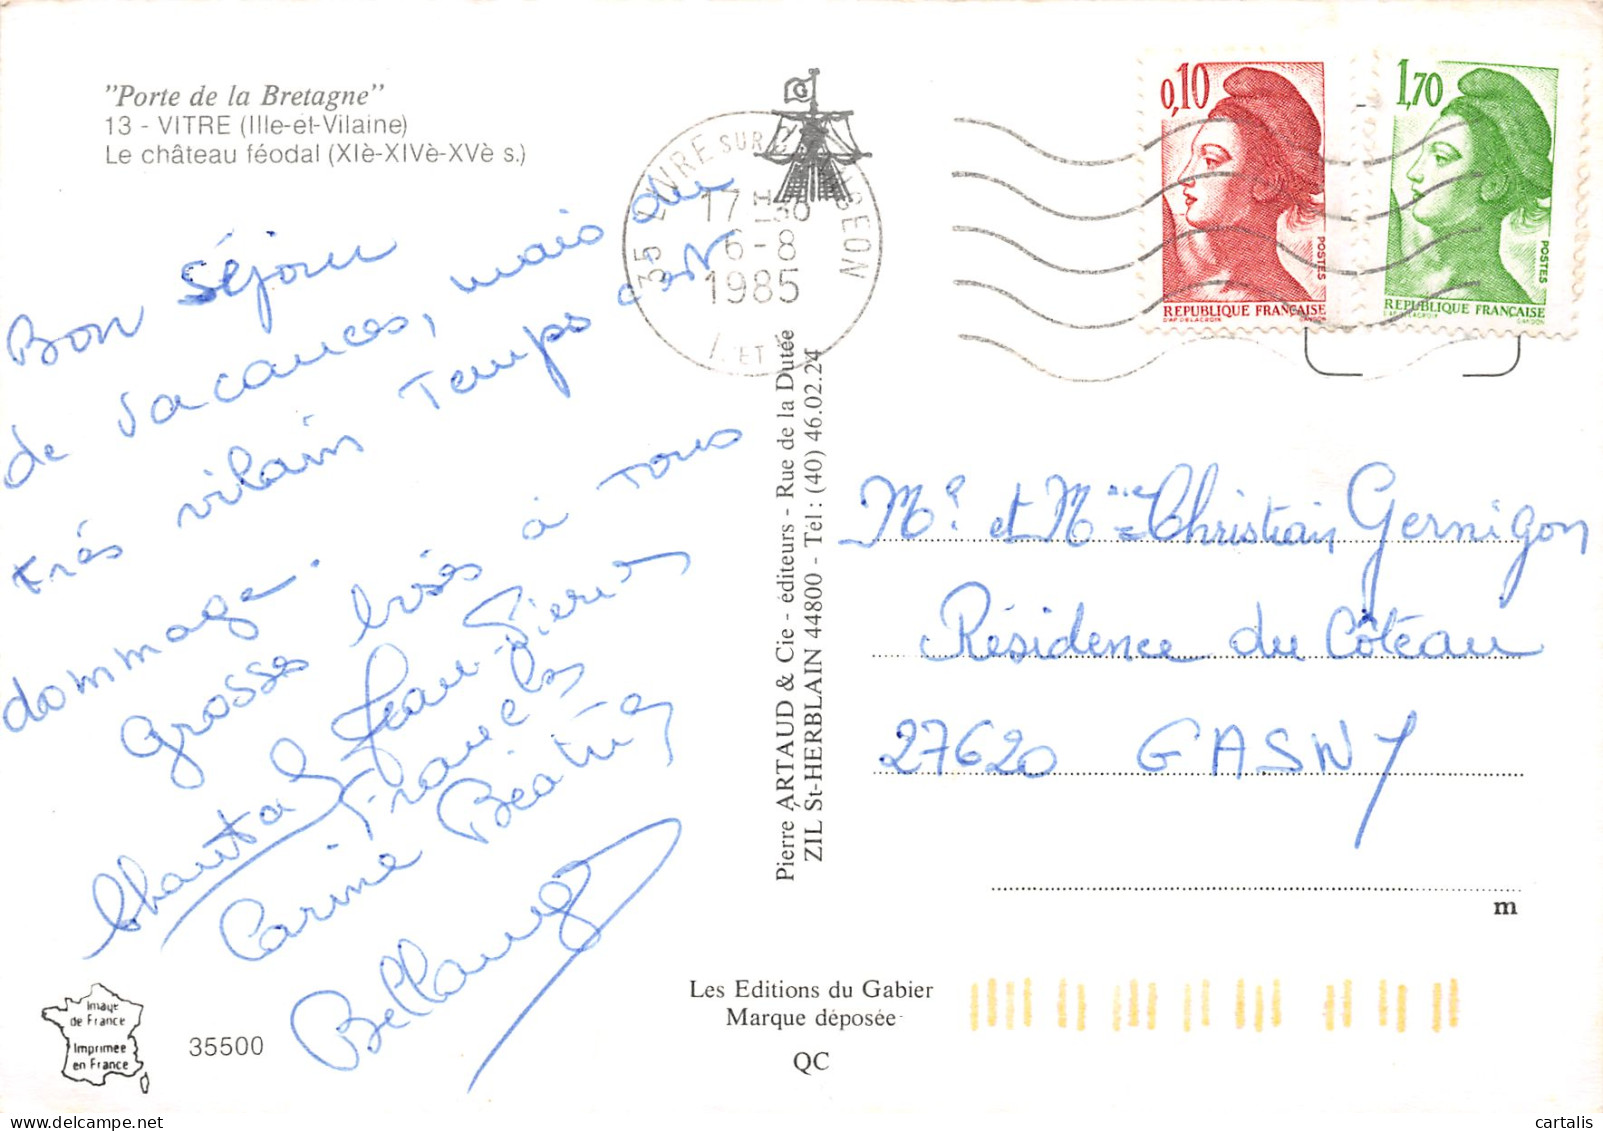 "Porte de la Bretagne"
13 - VITRE (Ille-et-Vilaine)
Le château féodal (XIè-XIVè-XVè s.)
Bon Séjour
de vacances, mais du
très vilain Temps
dommage.
grosses bises à Tous
Chantal Jean-Pierre
Franck
Carine Béatrice
35500
Image
de France
Imprimee
en France
35 LIVRE SUR
17 H 30
6-8
1985
I. ET V.
G
Pierre ARTAUD & Cie - éditeurs - Rue de la Dutée
ZIL St-HERBLAIN 44800 - Tél : (40) 46.02.24
Les Editions du Gabier
Marque déposée
QC
0,10
POSTES
REPUBLIQUE FRANÇAISE
D'AP. DELACROIX GANDON
1,70
POSTES
REPUBLIQUE FRANÇAISE
D'AP. DELACROIX GANDON
Mr et Mme Christian Gernigon
Résidence du Côteau
27620 GASNY
m
cartalis